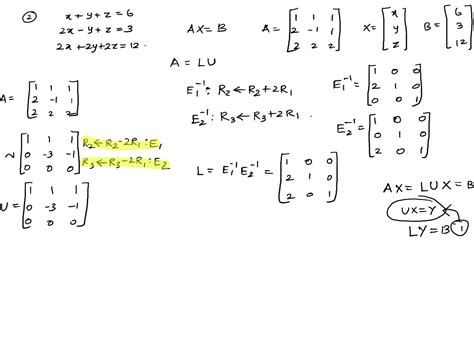 ② x + y + z = 6
2x - y + z = 3
2x + 2y + 2z = 12.
AX = B
A = [1 1 1; 2 -1 1; 2 2 2]
X = [x; y; z]
B = [6; 3; 12]
A = LU
A = [1 1 1; 2 -1 1; 2 2 2]
E₁⁻¹: R₂ ← R₂ + 2R₁
E₁⁻¹ = [1 0 0; 2 1 0; 0 0 1]
E₂⁻¹: R₃ ← R₃ + 2R₁
E₂⁻¹ = [1 0 0; 0 1 0; 2 0 1]
~ [1 1 1; 0 -3 -1; 0 0 0]
R₂ ← R₂ - 2R₁ : E₁
R₃ ← R₃ - 2R₁ : E₂
L = E₁⁻¹ E₂⁻¹ = [1 0 0; 2 1 0; 2 0 1]
U = [1 1 1; 0 -3 -1; 0 0 0]
AX = LUX = B
UX = Y
LY = B - ①